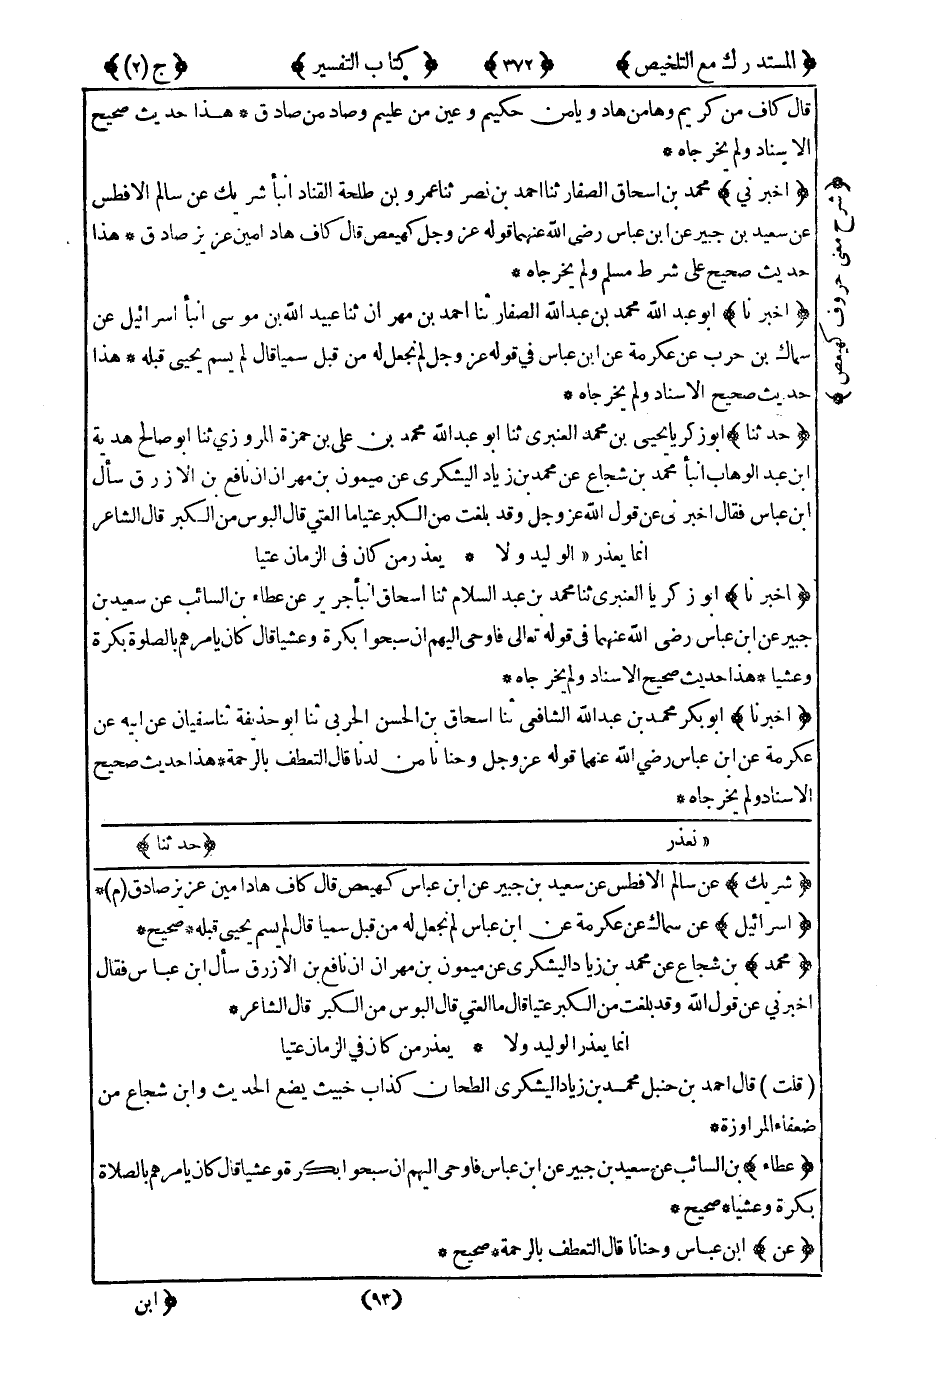 ﴿ المستدرك مع التلخيص ﴾ ﴿ ٣٧٢ ﴾ ﴿ كتاب التفسير ﴾ ﴿ ج (٢) ﴾
قال كاف من كريم وها من هاد ويا من حكيم وعين من عليم وصاد من صادق * هذا حديث صحيح
الاسناد ولم يخرجاه *
﴿ اخبرني ﴾ محمد بن اسحاق الصفار ثنا احمد بن نصر ثنا عمرو بن طلحة القناد انبأ شريك عن سالم الافطس
عن سعيد بن جبير عن ابن عباس رضى الله عنهما قوله عز وجل كهيعص قال كاف هاد امين عزيز صادق * هذا
حديث صحيح على شرط مسلم ولم يخرجاه *
﴿ اخبرنا ﴾ ابو عبد الله محمد بن عبدالله الصفار ثنا احمد بن مهران ثنا عبيد الله بن موسى انبأ اسرائيل عن
سماك بن حرب عن عكرمة عن ابن عباس في قوله عز وجل لم نجعل له من قبل سميا قال لم يسم يحيى قبله * هذا
حديث صحيح الاسناد ولم يخرجاه *
﴿ حدثنا ﴾ ابو زكريا يحيى بن محمد العنبرى ثنا ابو عبدالله محمد بن على بن حمزة المروزي ثنا ابو صالح هدية
ابن عبد الوهاب انبأ محمد بن شجاع عن محمد بن زياد اليشكرى عن ميمون بن مهران ان نافع بن الازرق سأل
ابن عباس فقال اخبرنى عن قول الله عز وجل وقد بلغت من الكبر عتيا ما العتي قال البوس من الكبر قال الشاعر
انما يعذر « الوليد ولا * يعذر من كان فى الزمان عتيا
﴿ اخبرنا ﴾ ابو زكريا العنبرى ثنا محمد بن عبد السلام ثنا اسحاق انبأ جرير عن عطاء بن السائب عن سعيد بن
جبير عن ابن عباس رضى الله عنهما فى قوله تعالى فاوحى اليهم ان سبحوا بكرة وعشيا قال كان يامرهم بالصلوة بكرة
وعشيا * هذا حديث صحيح الاسناد ولم يخرجاه *
﴿ اخبرنا ﴾ ابو بكر محمد بن عبدالله الشافعى ثنا اسحاق بن الحسن الحربى ثنا ابو حذيفة ثنا سفيان عن ابيه عن
عكرمة عن ابن عباس رضي الله عنهما قوله عز وجل وحنانا من لدنا قال التعطف بالرحمة * هذا حديث صحيح
الاسناد ولم يخرجاه *
﴿ شرح معنى حروف كهيعص ﴾
« نعذر ﴿ حدثنا ﴾
﴿ شريك ﴾ عن سالم الافطس عن سعيد بن جبير عن ابن عباس كهيعص قال كاف هاد امين عزيز صادق (م) *
﴿ اسرائيل ﴾ عن سماك عن عكرمة عن ابن عباس لم نجعل له من قبل سميا قال لم يسم يحيى قبله * صحيح *
﴿ محمد ﴾ بن شجاع عن محمد بن زياد اليشكرى عن ميمون بن مهران ان نافع بن الازرق سأل ابن عباس فقال
اخبرني عن قول الله وقد بلغت من الكبر عتيا قال ما العتي قال البوس من الكبر قال الشاعر *
انما يعذر الوليد ولا * يعذر من كان في الزمان عتيا
( قلت ) قال احمد بن حنبل محمد بن زياد اليشكرى الطحان كذاب خبيث يضع الحديث وابن شجاع من
ضعفاء المراوزة *
﴿ عطاء ﴾ بن السائب عن سعيد بن جبير عن ابن عباس فاوحى اليهم ان سبحوا بكرة وعشيا قال كان يامرهم بالصلاة
بكرة وعشيا * صحيح *
﴿ عن ﴾ ابن عباس وحنانا قال التعطف بالرحمة * صحيح *
(٩٣) ﴿ ابن